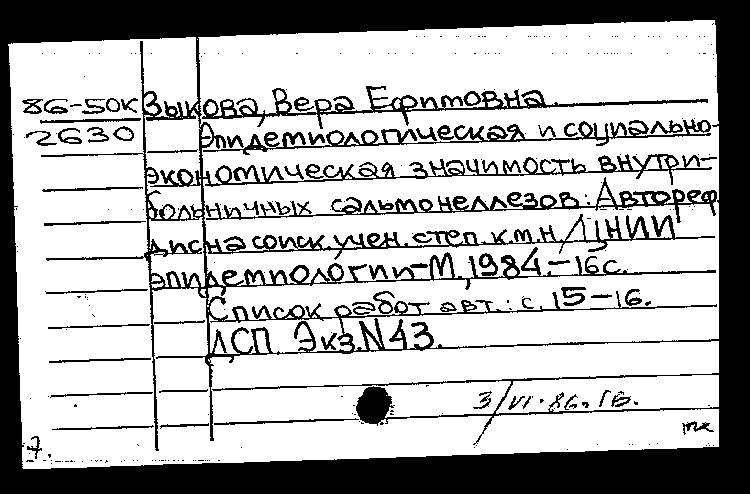 86-50К Зыкова, Вера Ефимовна.
2630 Эпидемиологическая и социально-
экономическая значимость внутри-
больничных сальмонеллезов: Автореф.
дис на соиск. учен. степ. к.м.н / ЦНИИ
эпидемиологии-М., 1984.-16с.
Список работ авт.: с. 15-16.
ДСП. Экз.N43.
3/VI-86.
7.